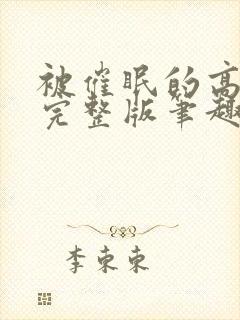 被催眠的高
完整版笔趣
李東東